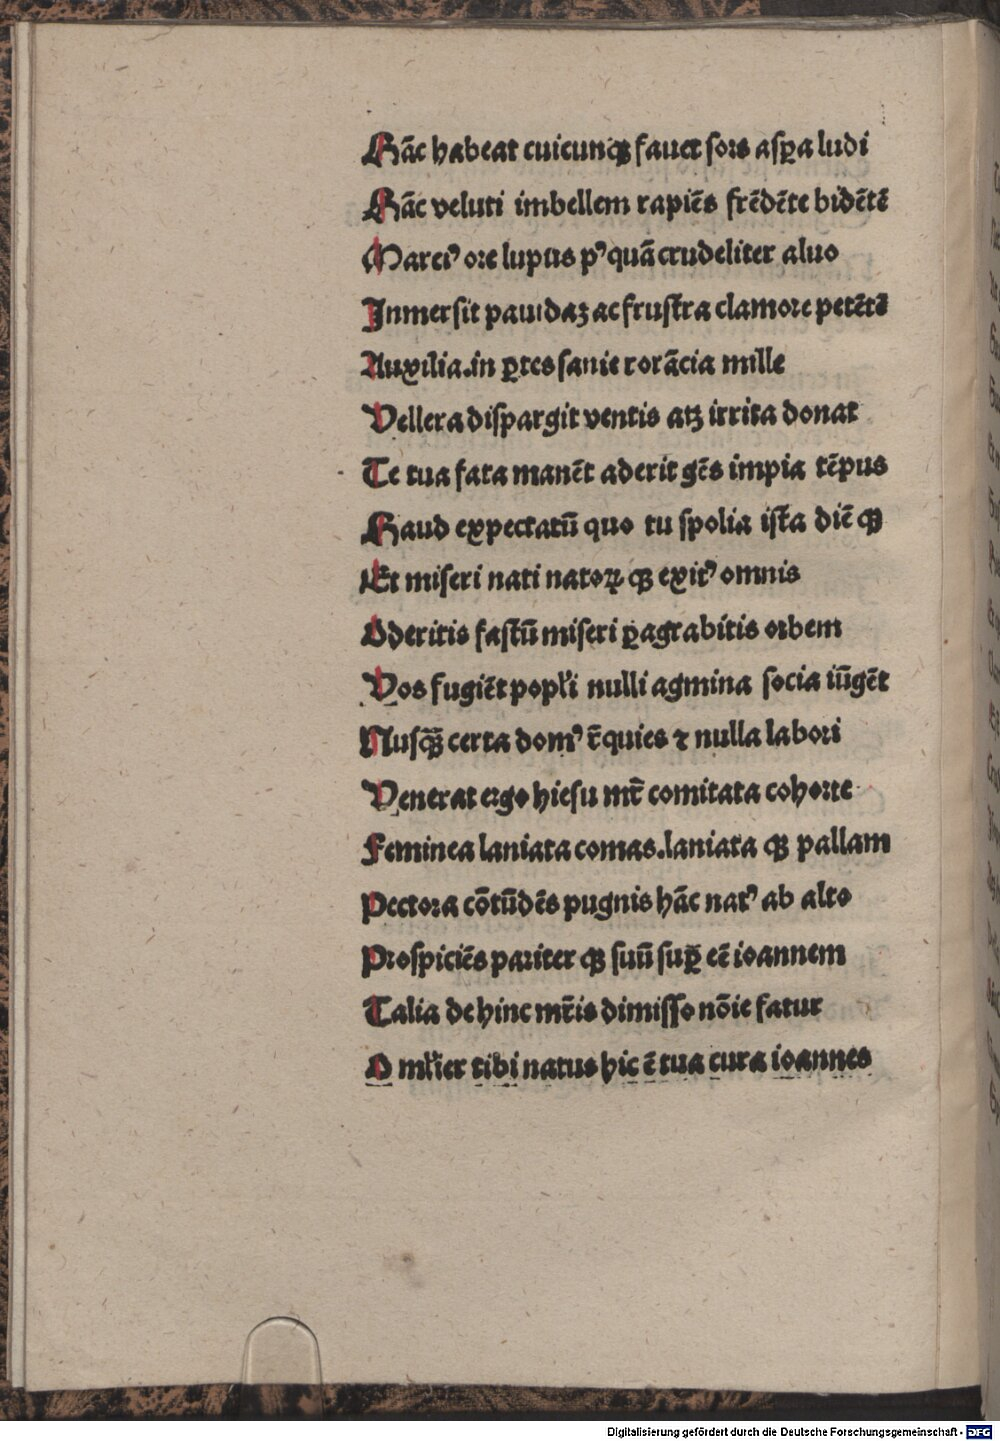 Hāc habeat cuicunqꝫ fauet sors asꝑa ludi
Hāc veluti imbellem rapiēs frēdēte bidētē
Marciꝰ ore lupus pꝰquā crudeliter aluo
Inmersit pauidaꝫ ac frustra clamore petētē
Auxilia.in ꝑtes sanie rorācia mille
Vellera dispargit ventis atꝫ irrita donat
Te tua fata manēt aderit gēs impia tēpus
Haud expectatū quo tu spolia ista diē qꝫ
Et miseri nati natoꝝ qꝫ exitꝰ omnis
Oderitis fastū miseri ꝑagrabitis orbem
Vos fugiēt popľi nulli agmina socia iūgēt
Nusqꝫ̄ certa domꝰ r̄quies ⁊ nulla labori
Venerat ergo hiesu mr̄ comitata cohorte
Feminea laniata comas.laniata qꝫ pallam
Pectora cōtūdēs pugnis hāc natꝰ ab alto
Prospiciēs pariter qꝫ suū suꝑ eē ioannem
Talia dehinc mr̄is dimisso nōie fatur
O mľier tibi natus hic ē tua cura ioannes
Digitalisierung gefördert durch die Deutsche Forschungsgemeinschaft - DFG